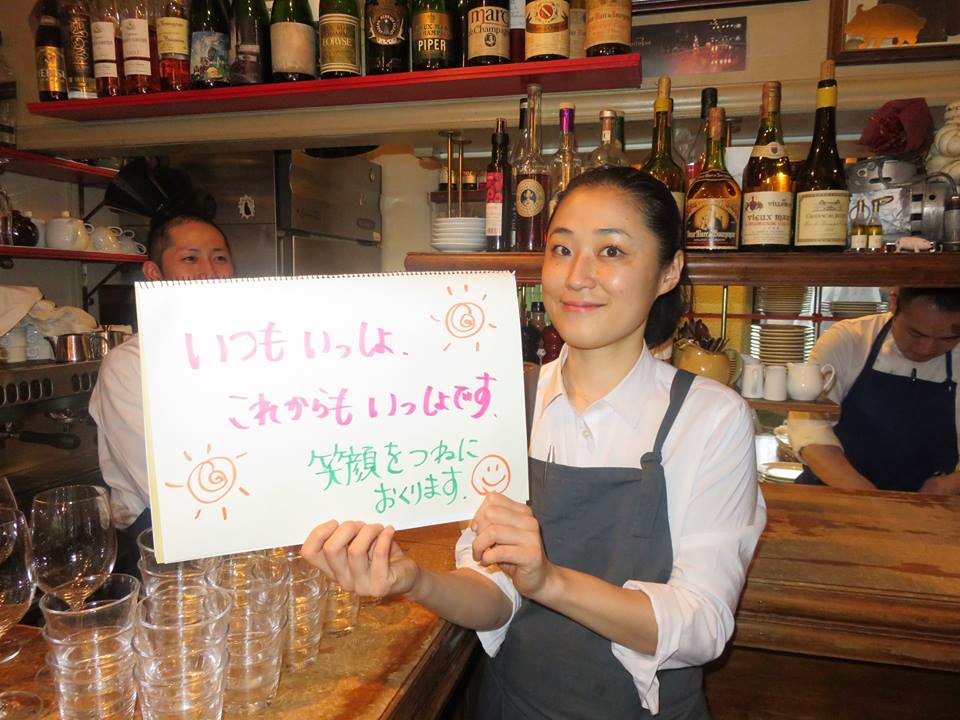 いつもいっしょ.
これからもいっしょです.
笑顔をつねに
おくります.
PIPER
marc
VIEUX MARC